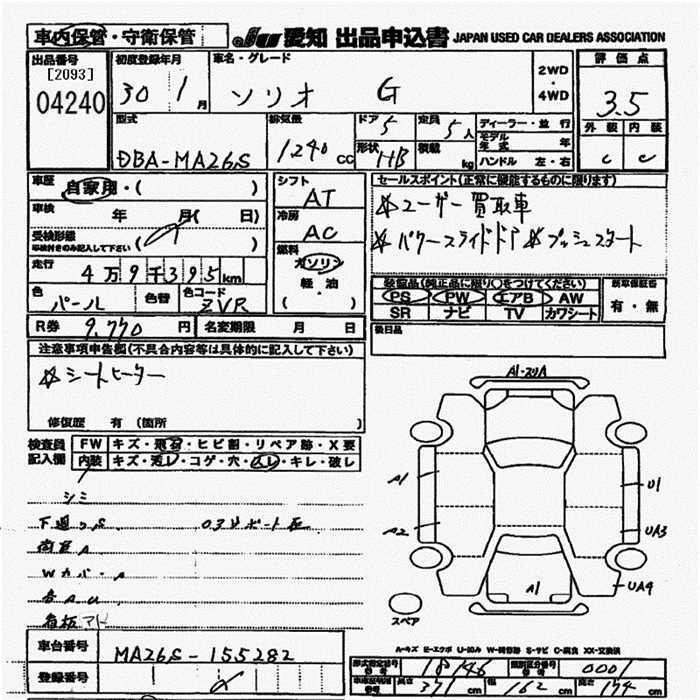 車内保管・守衛保管 JU 愛知 出品申込書 JAPAN USED CAR DEALERS ASSOCIATION
出品番号 初度登録年月 車名・グレード 2WD 4WD 評価点
[2093]
04240 30 1 月 ソリオ G 3.5
型式 排気量 ドア 5 定員 5 人 ディーラー・並行 外装 内装
DBA-MA26S 1240 CC 形状 HB 積載 kg モデル年式 年 C C
ハンドル 左・右
車歴 自家用・( ) シフト AT セールスポイント(正常に機能するものに限ります)
車検 年 月( 日) 冷房 AC ☆ユーザー買取車
受検形態 車検付きのみ記入して下さい ( ) ☆パワースライドドア ☆プッシュスタート
走行 4万9千395km 燃料 ガソリン・軽油 ( )
装備品(純正品に限り○をつけてください) 新車保証書
色 パール 色替 色コード ZVR PS PW エアB AW 有・無
SR ナビ TV カワシート
R券 9,770 円 名変期限 月 日 後日品
注意事項申告欄(不具合内容等は具体的に記入して下さい)
☆シートヒーター
修復歴 有(箇所 )
検査員記入欄 FW キズ・飛石・ヒビ割・リペア跡・X要
内装 キズ・汚レ・コゲ・穴・スレ・キレ・破レ
シミ
A1
A1
U1
A2
UA3
A1
UA4
スペア
A-キズ E-エクボ U-凹み W-補修跡 S-サビ C-腐食 XX-交換済
車台番号 MA26S-155282
登録番号
型式指定番号 18746 類別区分番号 0001
長さ 371 cm 幅 162 cm 高さ 174 cm